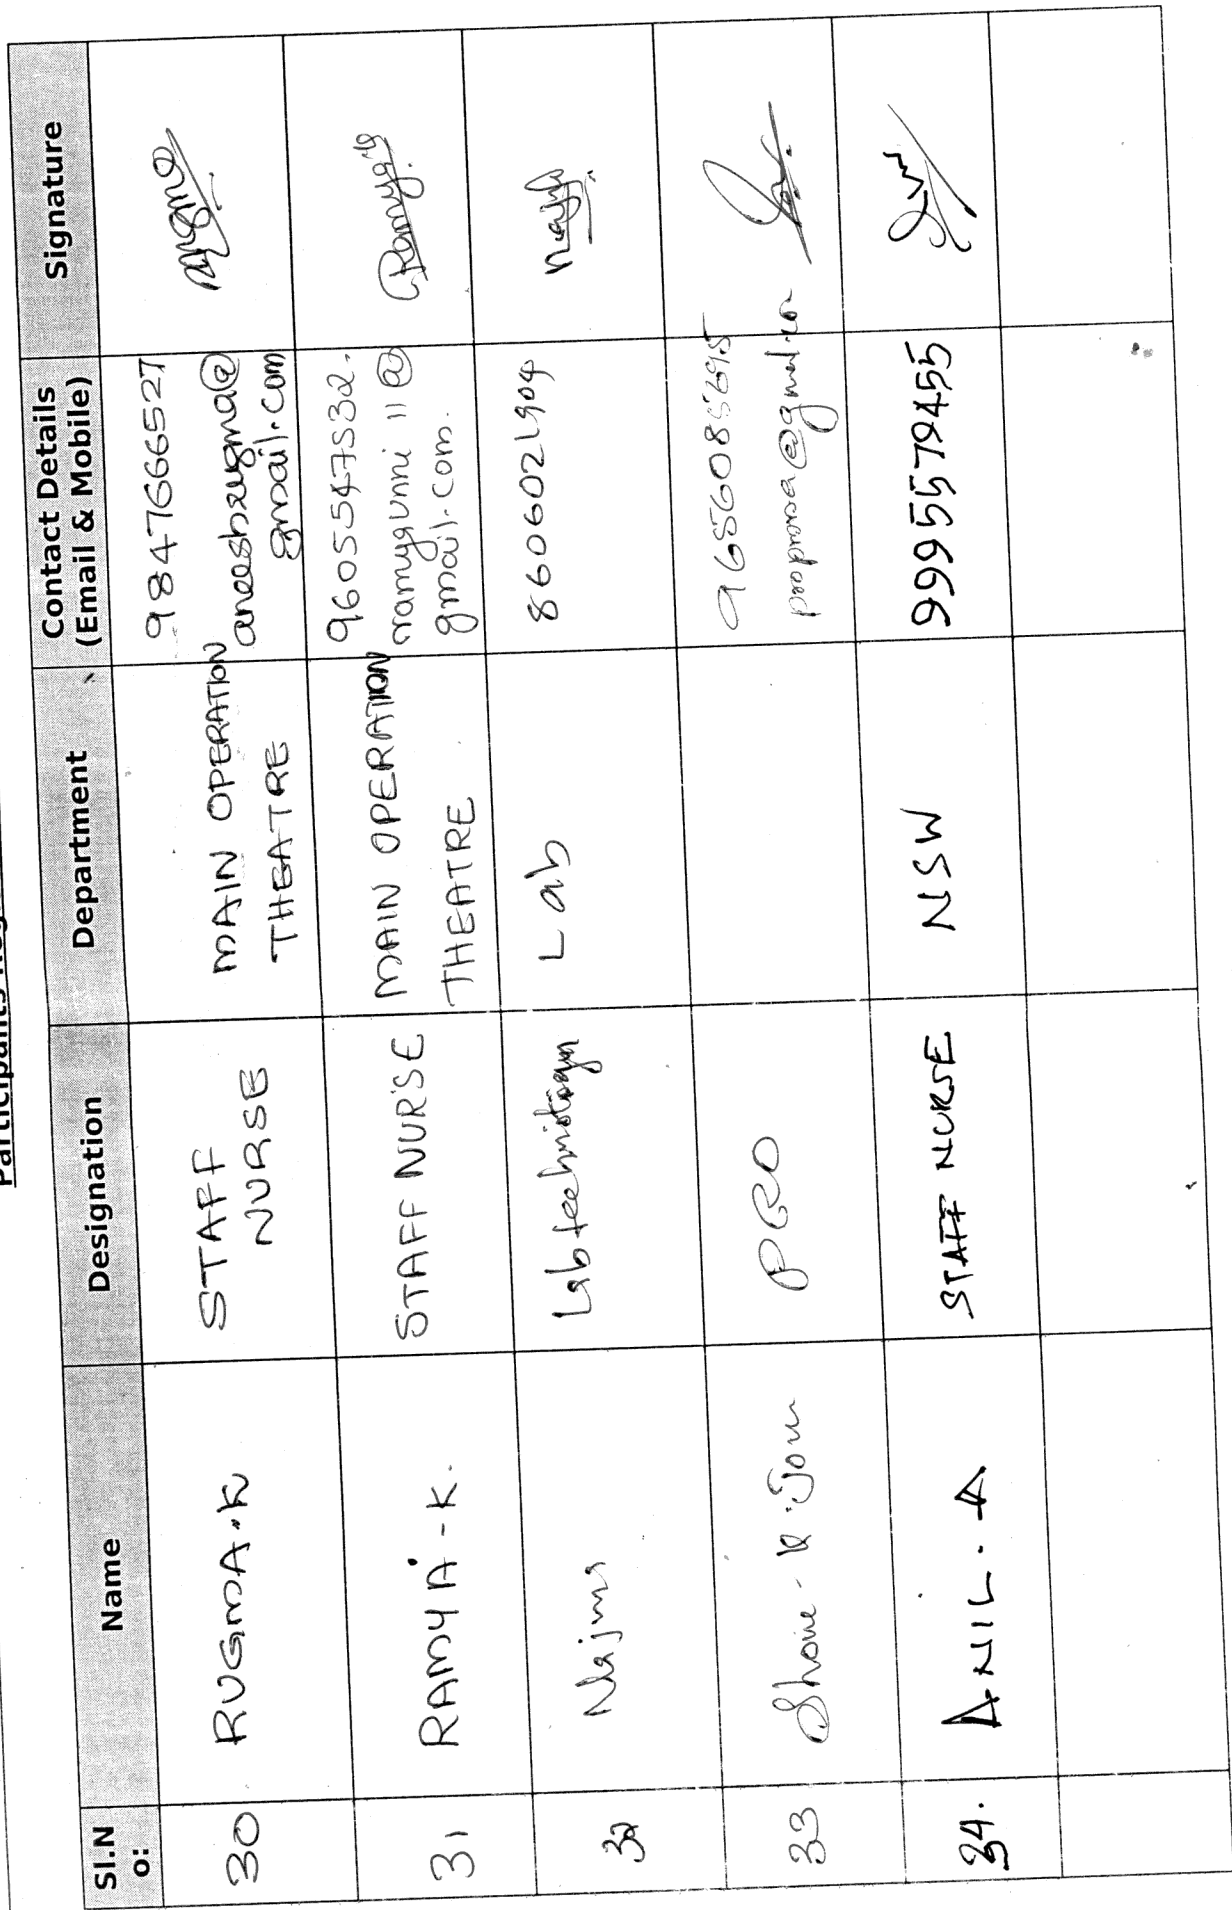 Participants Reg
Sl.N
o:
Name
Designation
Department
Contact Details
(Email & Mobile)
Signature
30
RUGMA.K
STAFF
NURSE
MAIN OPERATION
THEATRE
9847666527
aneeshrugma@
gmail.com
31
RAMYA-K.
STAFF NURSE
MAIN OPERATION
THEATRE
9605547532.
ramyaunni11@
gmail.com.
Ramya
32
Najma
Lab
Lab
8606021909
33
PRO
34.
ANIL.A
STAFF NURSE
NSW
9995579455